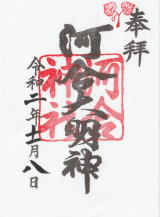 奉拝
河合大明神
河合神社
令和二年十一月八日